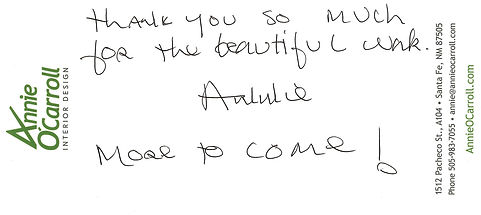 Thank you so much
for the beautiful work.
Annie
More to come!
Annie
O'Carroll
INTERIOR DESIGN
1512 Pacheco St., A104 • Santa Fe, NM 87505
Phone 505-983-7055 • annie@annieocarroll.com
AnnieOCarroll.com